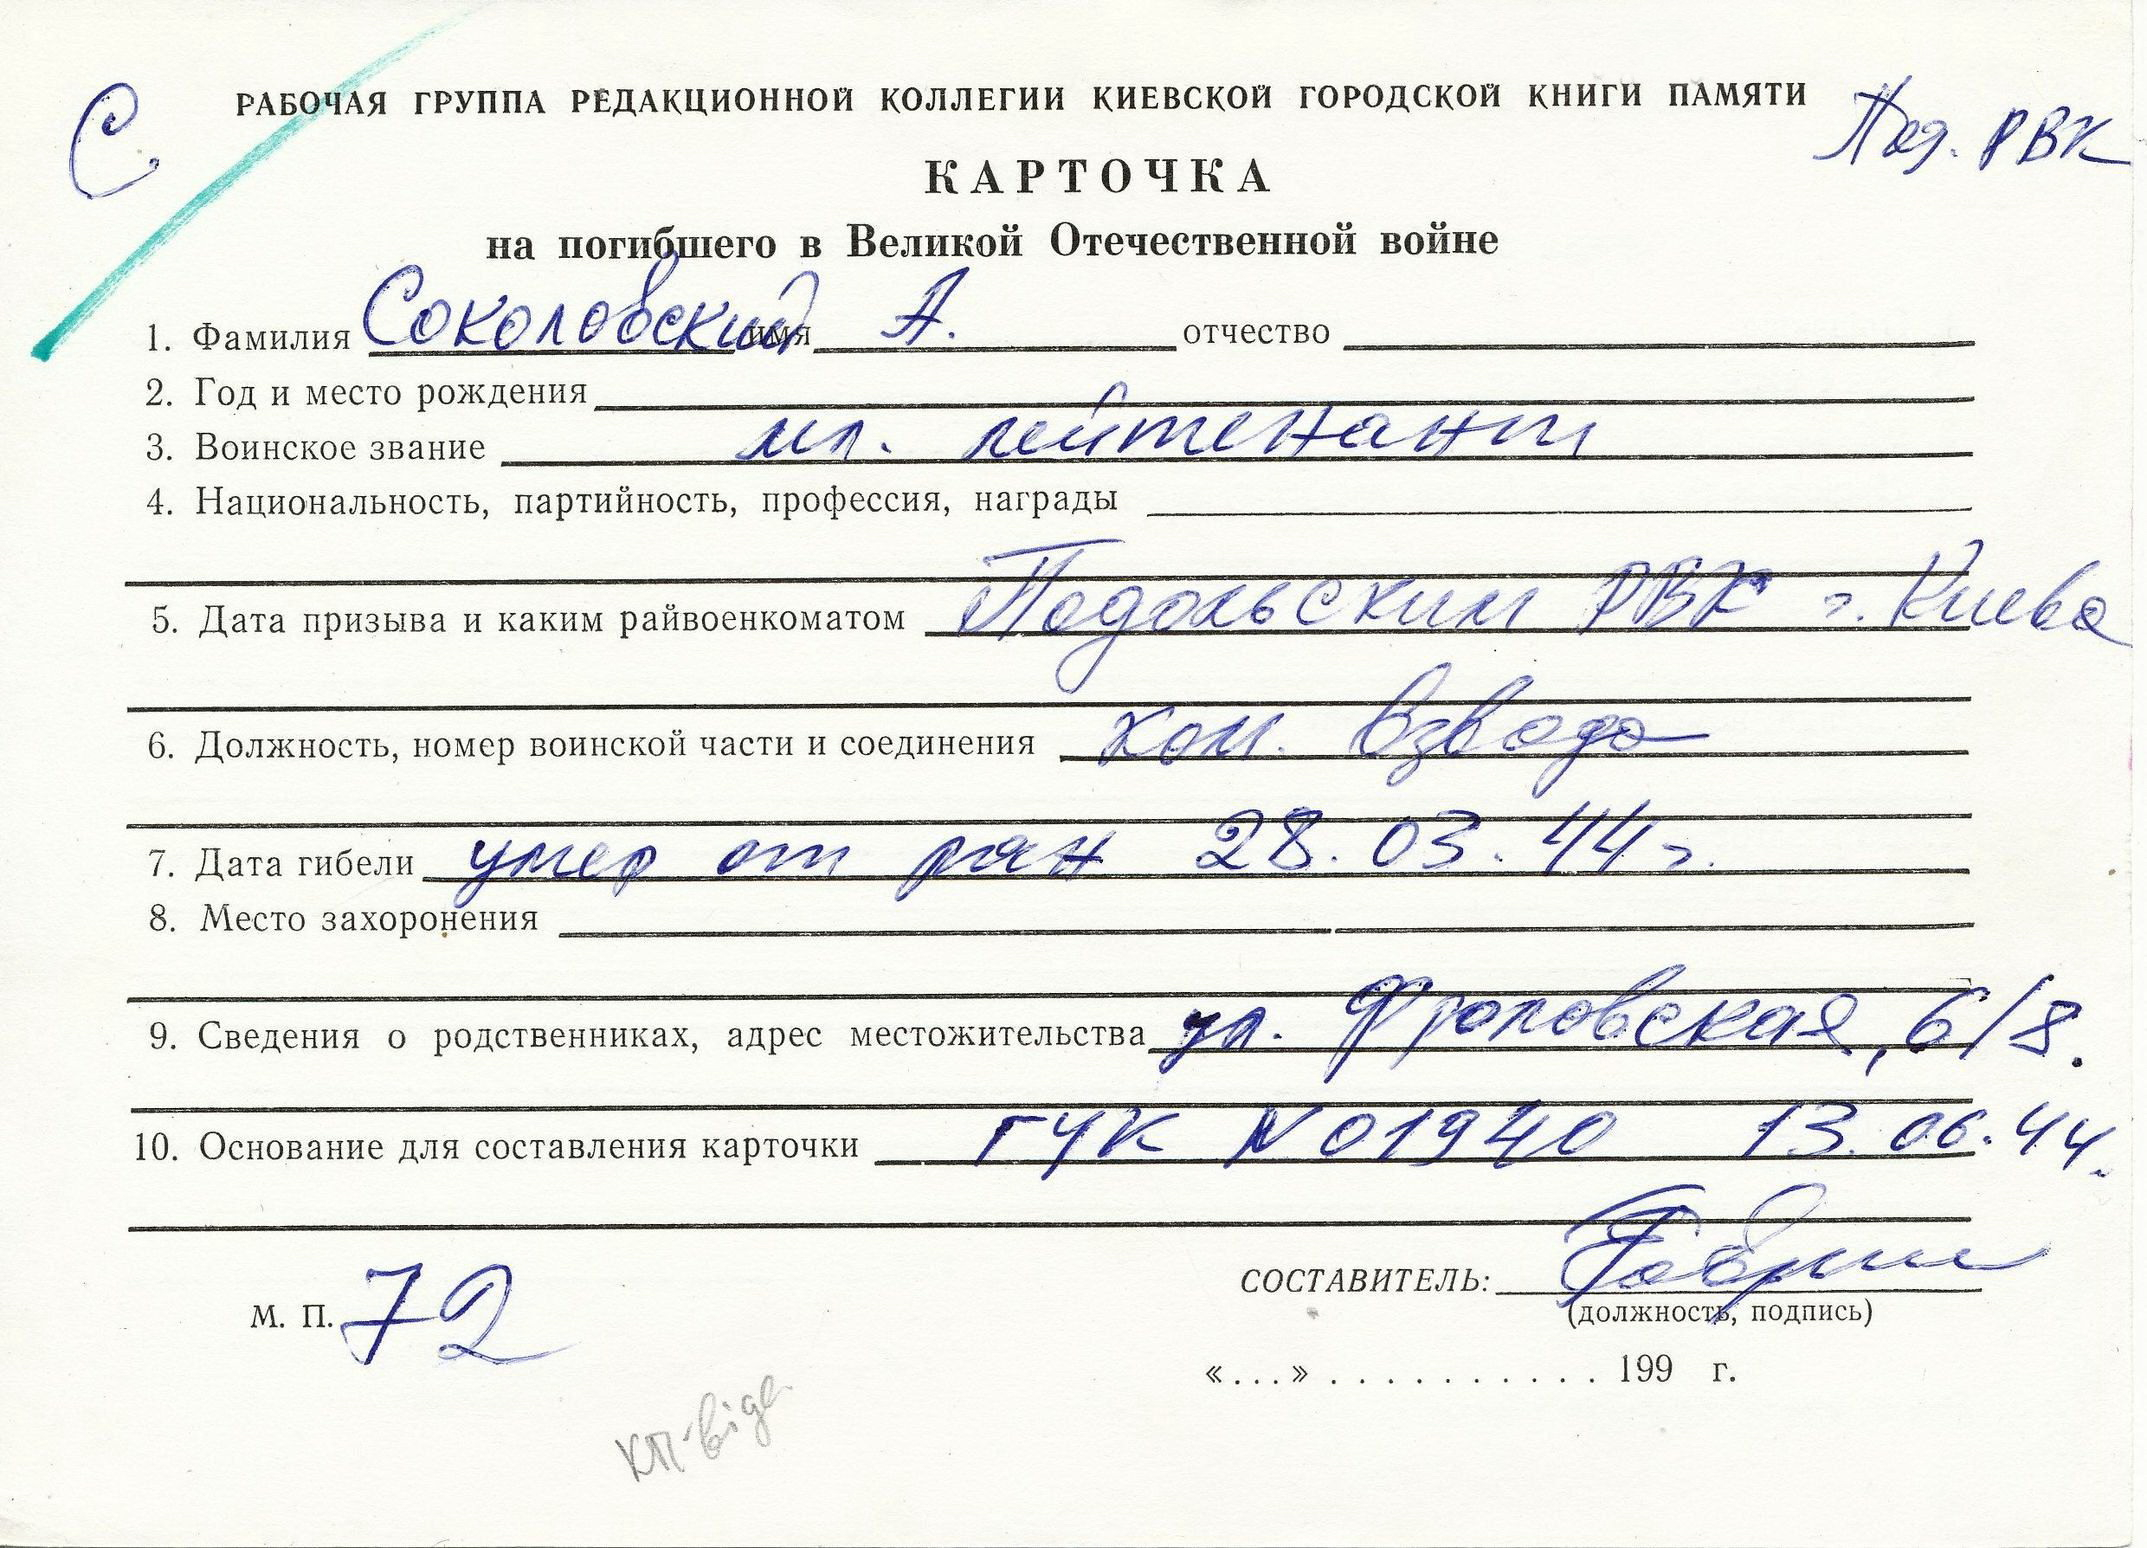 С
РАБОЧАЯ ГРУППА РЕДАКЦИОННОЙ КОЛЛЕГИИ КИЕВСКОЙ ГОРОДСКОЙ КНИГИ ПАМЯТИ
Под. РВК
КАРТОЧКА
на погибшего в Великой Отечественной войне
1. Фамилия Соколовский имя А. отчество
2. Год и место рождения
3. Воинское звание мл. лейтенант
4. Национальность, партийность, профессия, награды
5. Дата призыва и каким райвоенкоматом Подольским РВК г. Киева
6. Должность, номер воинской части и соединения ком. взвода
7. Дата гибели умер от ран 28.03.44 г.
8. Место захоронения
9. Сведения о родственниках, адрес местожительства ул. Фроловская, 6/8.
10. Основание для составления карточки ГУК N 01940 13.06.44.
СОСТАВИТЕЛЬ:
(должность, подпись)
М. П. 72
«...» . . . . . . . . . . . 199 г.